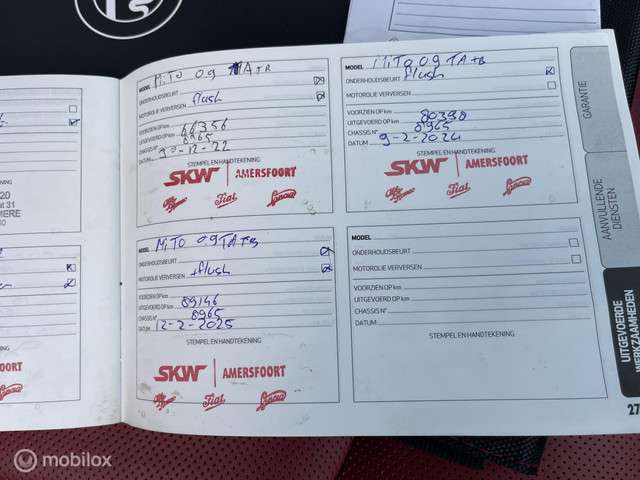 MODEL MiTO 0.9 TATB
ONDERHOUDSBEURT
MOTOROLIE VERVERSEN flush
VOORZIEN OP km
UITGEVOERD OP km 66356
CHASSIS N° 8965
DATUM 30-12-22
STEMPEL EN HANDTEKENING
SKW AMERSFOORT
Alfa Romeo Fiat Lancia
MODEL MiTO 0.9 TATB
ONDERHOUDSBEURT flush
MOTOROLIE VERVERSEN
VOORZIEN OP km
UITGEVOERD OP km 80398
CHASSIS N° 8965
DATUM 9-2-2024
STEMPEL EN HANDTEKENING
SKW AMERSFOORT
Alfa Romeo Fiat Lancia
MODEL MiTO 0.9 TATB
ONDERHOUDSBEURT
MOTOROLIE VERVERSEN +flush
VOORZIEN OP km
UITGEVOERD OP km 89146
CHASSIS N° 8965
DATUM 12-2-2025
STEMPEL EN HANDTEKENING
SKW AMERSFOORT
Alfa Romeo Fiat Lancia
MODEL
ONDERHOUDSBEURT
MOTOROLIE VERVERSEN
VOORZIEN OP km
UITGEVOERD OP km
CHASSIS N°
DATUM
STEMPEL EN HANDTEKENING
GARANTIE
AANVULLENDE
DIENSTEN
UITGEVOERDE
WERKZAAMHEDEN
27
20
at 31
MERE
mobilox